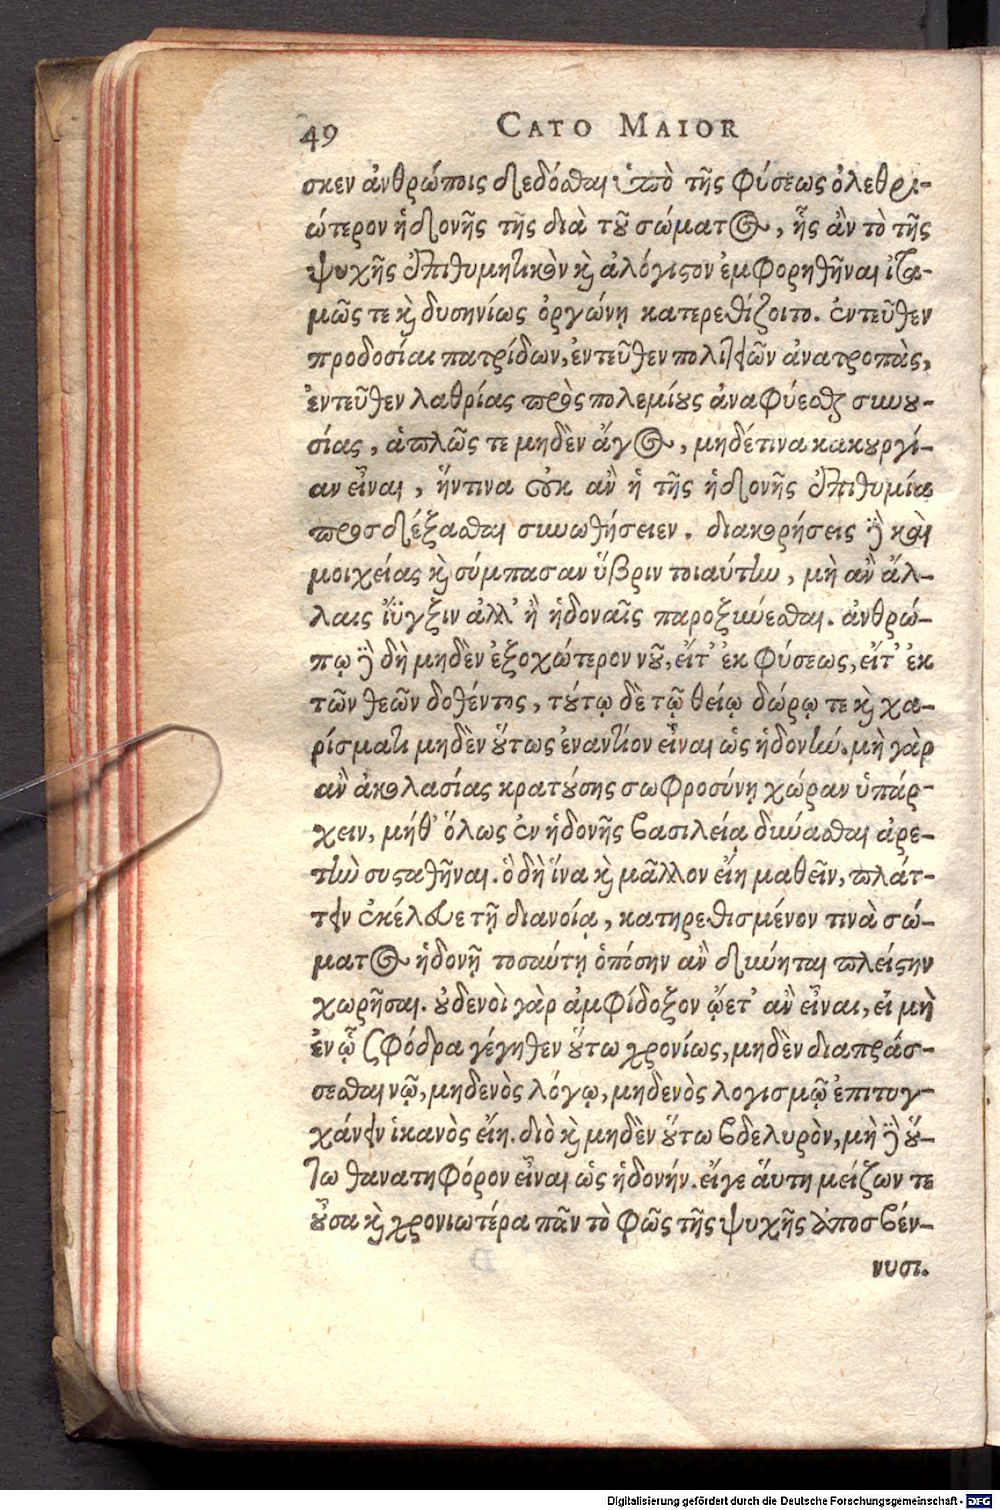 49 CATO MAIOR
σκεν ἀνθρώποις δεδόσθαι ὑπὸ τῆς φύσεως ὀλεθρι-
ώτερον ἡδονῆς τῆς διὰ τοῦ σώματος, ἧς ἂν τὸ τῆς
ψυχῆς ἐπιθυμητικὸν καὶ ἀλόγιστον ἐμφορηθῆναι ἰτα-
μῶς τε καὶ δυσηνίως ὀργώνη κατερεθίζοιτο. ἐντεῦθεν
προδοσίαι πατρίδων, ἐντεῦθεν πολιτειῶν ἀνατροπὰς,
ἐντεῦθεν λαθρίας πρὸς πολεμίους ἀναφύεσθαι συνου-
σίας, ἁπλῶς τε μηδὲν ἄγος, μηδέτινα κακουργί-
αν εἶναι, ἥντινα οὐκ ἂν ἡ τῆς ἡδονῆς ἐπιθυμία
προσδέξασθαι συνωθήσειεν. διακορήσεις δὲ καὶ
μοιχείας καὶ σύμπασαν ὕβριν τοιαύτην, μὴ ἂν ἄλ-
λαις ἴϋγξιν ἀλλ' ἢ ἡδοναῖς παροξύνεσθαι. ἀνθρώ-
πῳ δὲ δὴ μηδὲν ἐξοχώτερον νοῦ, εἴτ' ἐκ φύσεως, εἴτ' ἐκ
τῶν θεῶν δοθέντος, τούτῳ δὲ τῷ θείῳ δώρῳ τε καὶ χα-
ρίσματι μηδὲν οὕτως ἐναντίον εἶναι ὡς ἡδονήν. μὴ γὰρ
ἂν ἀκολασίας κρατούσης σωφροσύνῃ χώραν ὑπάρ-
χειν, μήθ' ὅλως ἐν ἡδονῆς βασιλείᾳ δύνασθαι ἀρε-
τὴν συσταθῆναι. ὃ δὴ ἵνα καὶ μᾶλλον εἴη μαθεῖν, πλάτ-
τειν ἐκέλευε τῇ διανοίᾳ, κατηρεθισμένον τινὰ σώ-
ματος ἡδονῇ τοσαύτῃ ὁπόσην ἂν δύνηται πλείστην
χωρῆσαι. οὐδενοὶ γὰρ ἀμφίδοξον ᾤετ' ἂν εἶναι, εἰ μὴ
ἐν ᾧ σφόδρα γέγηθεν οὕτω χρονίως, μηδὲν διαπράσ-
σεσθαι νῷ, μηδενὸς λόγῳ, μηδενὸς λογισμῷ ἐπιτυγ-
χάνειν ἱκανὸς εἴη. διὸ καὶ μηδὲν οὕτω βδελυρὸν, μὴ δὲ οὕ-
τω θανατηφόρον εἶναι ὡς ἡδονήν. εἴγε ἅυτη μείζων τε
οὖσα καὶ χρονιωτέρα πᾶν τὸ φῶς τῆς ψυχῆς ἀποσβέν-
νυσι.
Digitalisierung gefördert durch die Deutsche Forschungsgemeinschaft - DFG